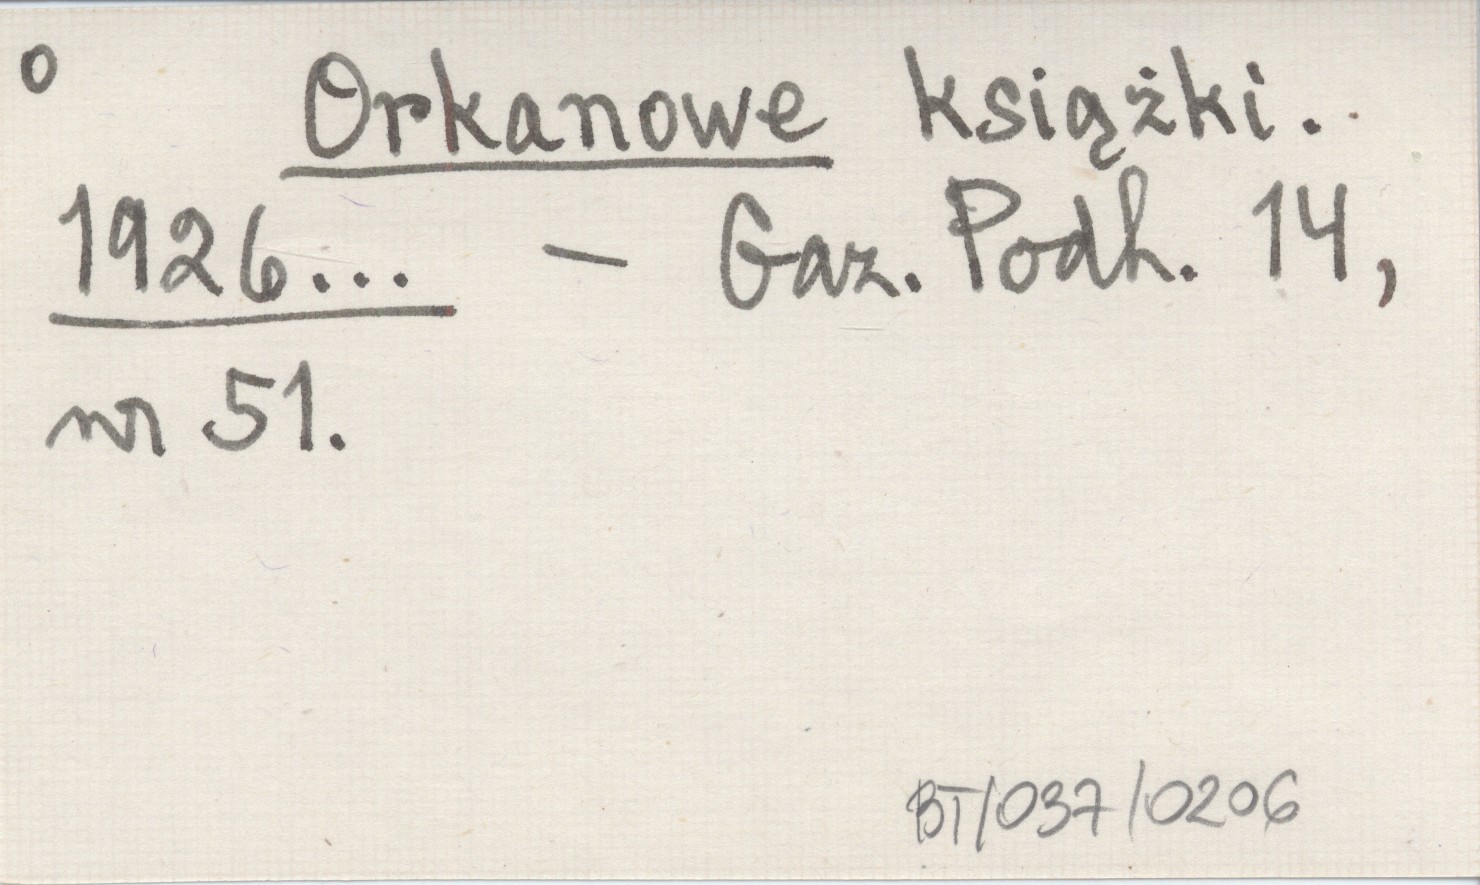 o Orkanowe książki.
1926... - Gaz. Podh. 14,
nr 51.
BT/037/0206